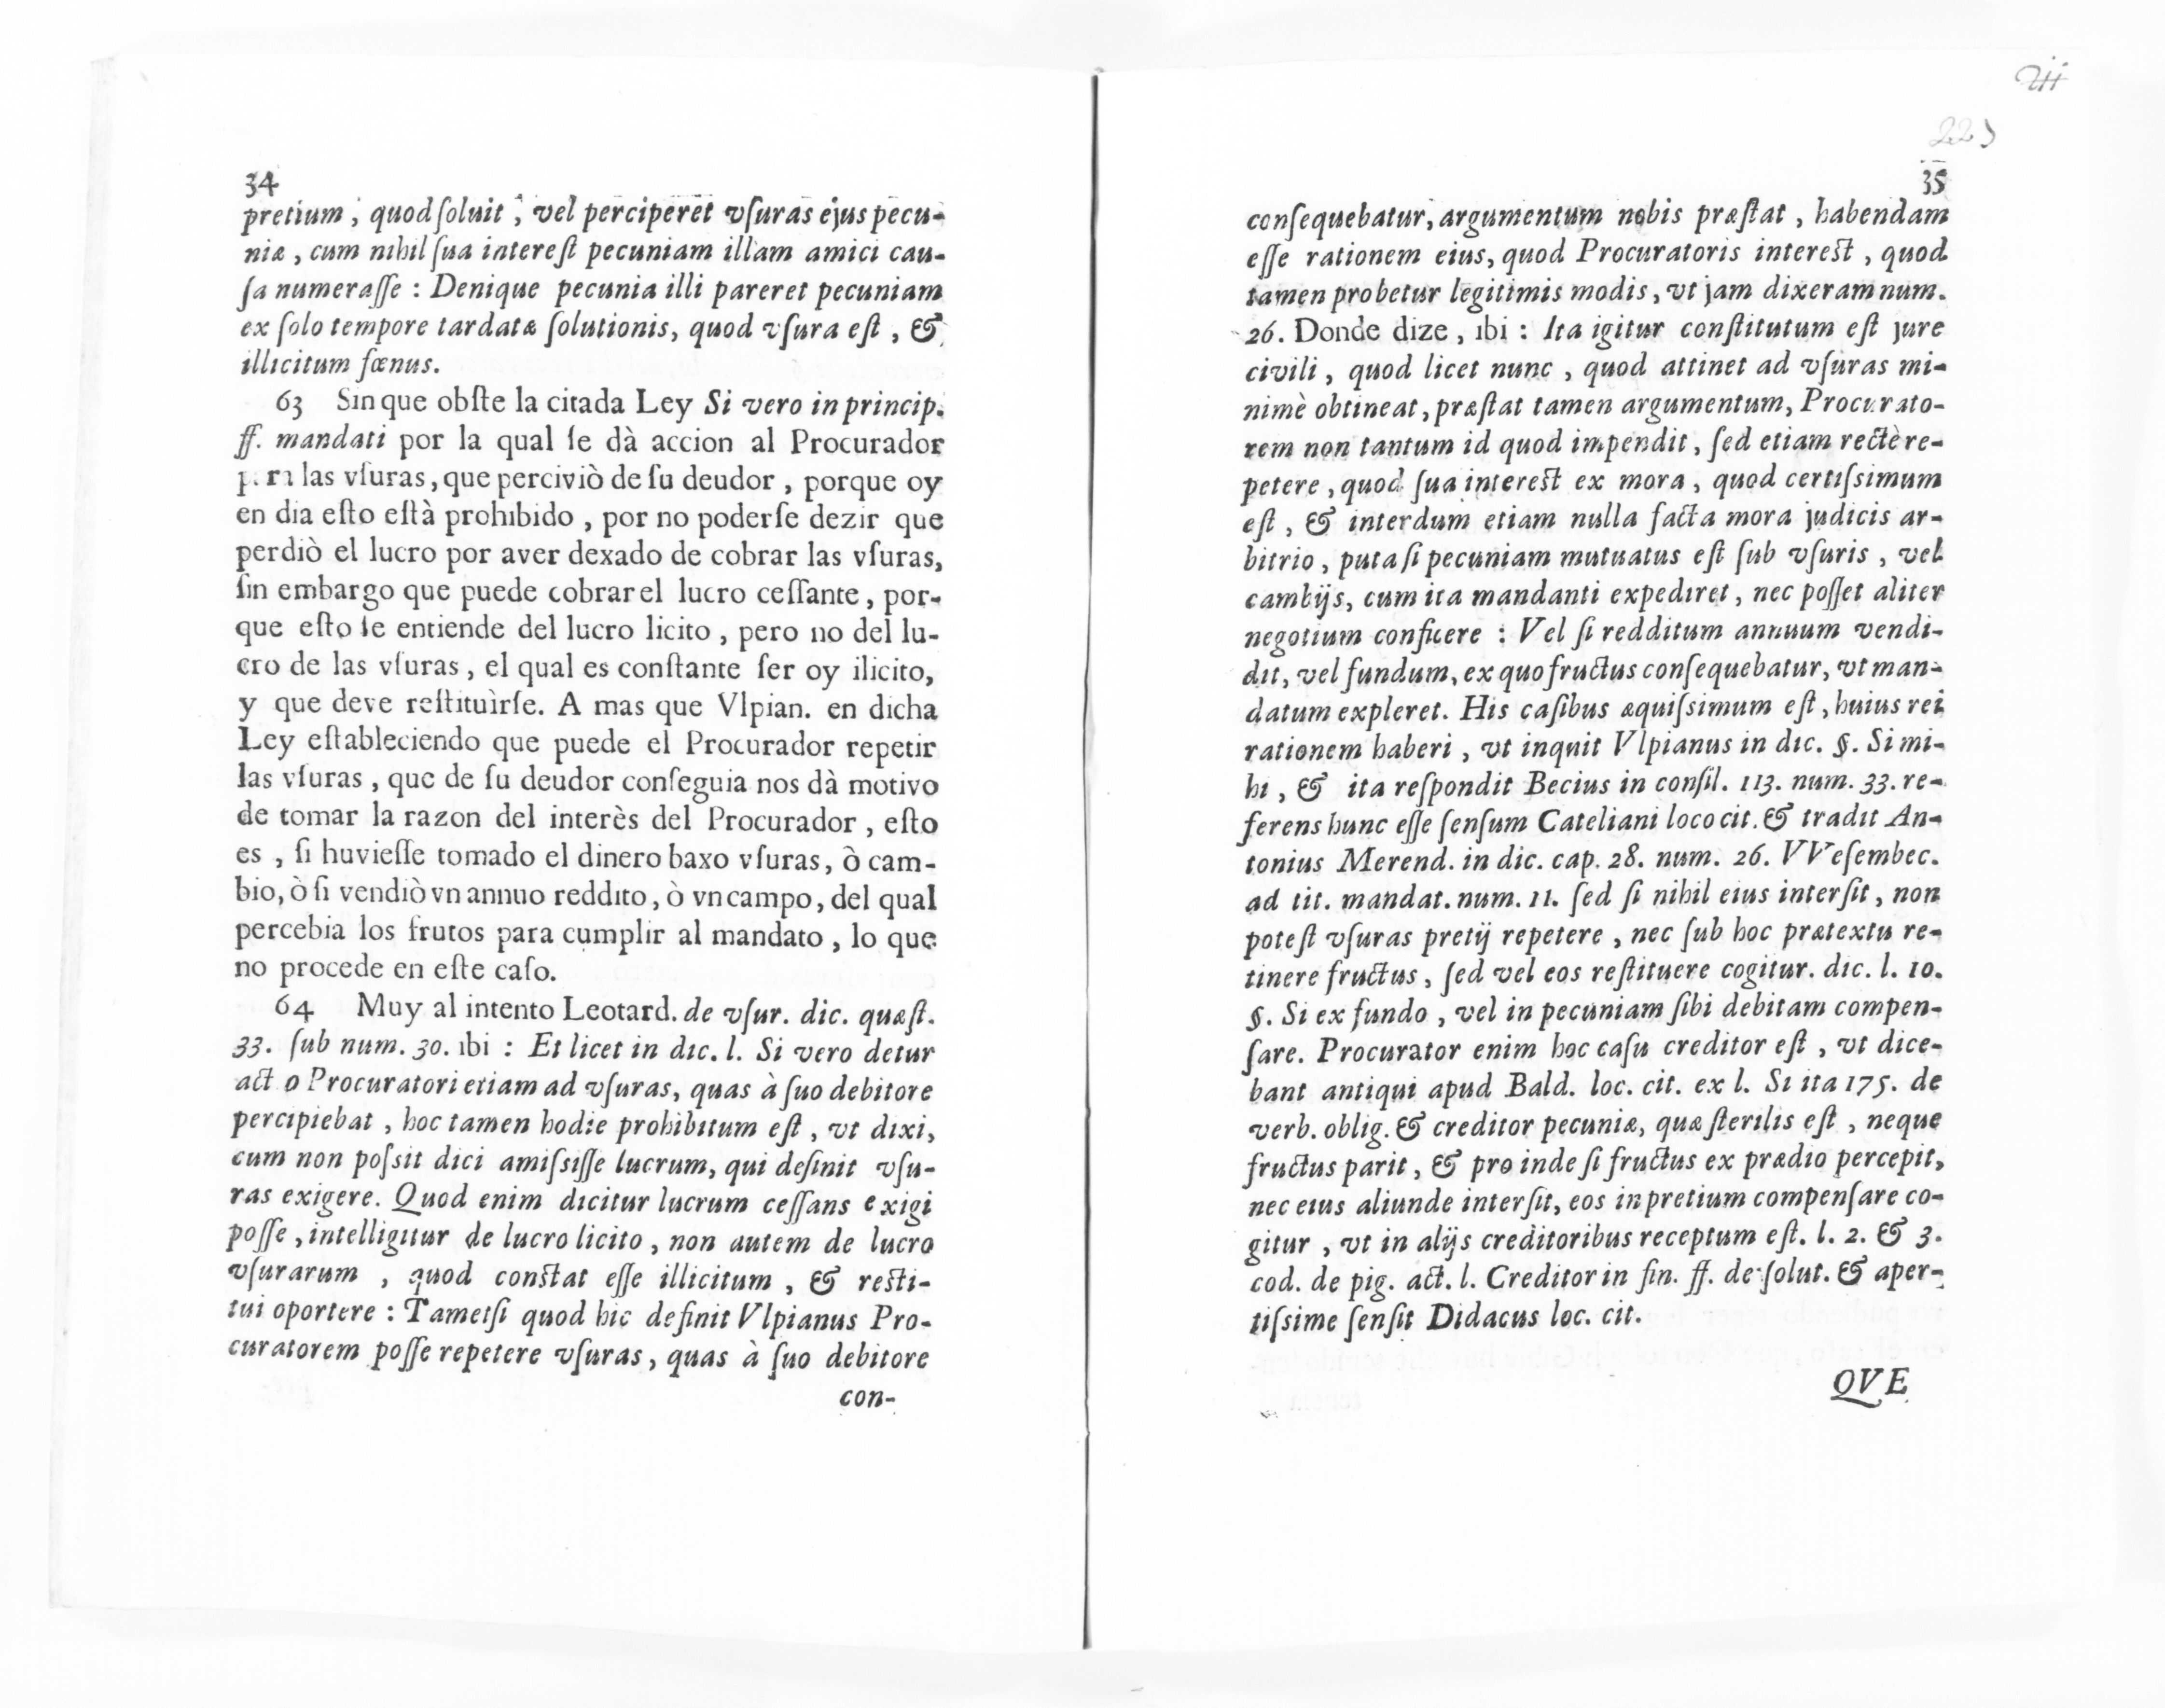 34
pretium, quod ſoluit, vel perciperet vſuras ejus pecu-
niæ, cum nihil ſua intereſt pecuniam illam amici cau-
ſa numeraſſe : Denique pecunia illi pareret pecuniam
ex ſolo tempore tardatæ ſolutionis, quod vſura eſt, &
illicitum fœnus.
63 Sin que obſte la citada Ley Si vero in princip.
ff. mandati por la qual ſe dà accion al Procurador
para las vſuras, que perciviò de ſu deudor, porque oy
en dia eſto eſtà prohibido, por no poderſe dezir que
perdiò el lucro por aver dexado de cobrar las vſuras,
ſin embargo que puede cobrar el lucro ceſſante, por-
que eſto ſe entiende del lucro licito, pero no del lu-
cro de las vſuras, el qual es conſtante ſer oy ilicito,
y que deve reſtituìrſe. A mas que Vlpian. en dicha
Ley eſtableciendo que puede el Procurador repetir
las vſuras, que de ſu deudor conſeguia nos dà motivo
de tomar la razon del interès del Procurador, eſto
es, ſi huvieſſe tomado el dinero baxo vſuras, ò cam-
bio, ò ſi vendiò vn annuo reddito, ò vn campo, del qual
percebia los frutos para cumplir al mandato, lo que
no procede en eſte caſo.
64 Muy al intento Leotard. de vſur. dic. quæſt.
33. ſub num. 30. ibi : Et licet in dic. l. Si vero detur
act o Procuratori etiam ad vſuras, quas à ſuo debitore
percipiebat, hoc tamen hodie prohibitum eſt, vt dixi,
cum non poſsit dici amiſsiſſe lucrum, qui deſinit vſu-
ras exigere. Quod enim dicitur lucrum ceſſans exigi
poſſe, intelligitur de lucro licito, non autem de lucro
vſurarum, quod conſtat eſſe illicitum, & reſti-
tui oportere : Tametſi quod hic definit Vlpianus Pro-
curatorem poſſe repetere vſuras, quas à ſuo debitore
con-
35
conſequebatur, argumentum nobis præſtat, habendam
eſſe rationem eius, quod Procuratoris intereſt, quod
tamen probetur legitimis modis, vt jam dixeram num.
26. Donde dize, ibi : Ita igitur conſtitutum eſt jure
civili, quod licet nunc, quod attinet ad vſuras mi-
nimè obtineat, præſtat tamen argumentum, Procurato-
rem non tantum id quod impendit, ſed etiam rectè re-
petere, quod ſua intereſt ex mora, quod certiſsimum
eſt, & interdum etiam nulla facta mora judicis ar-
bitrio, puta ſi pecuniam mutuatus eſt ſub vſuris, vel
cambijs, cum ita mandanti expediret, nec poſſet aliter
negotium conficere : Vel ſi redditum annuum vendi-
dit, vel fundum, ex quo fructus conſequebatur, vt man-
datum expleret. His caſibus æquiſsimum eſt, huius rei
rationem haberi, vt inquit Vlpianus in dic. §. Si mi-
hi, & ita reſpondit Becius in conſil. 113. num. 33. re-
ferens hunc eſſe ſenſum Cateliani loco cit. & tradit An-
tonius Merend. in dic. cap. 28. num. 26. VVeſembec.
ad tit. mandat. num. 11. ſed ſi nihil eius interſit, non
poteſt vſuras pretij repetere, nec ſub hoc prætextu re-
tinere fructus, ſed vel eos reſtituere cogitur. dic. l. 10.
§. Si ex fundo, vel in pecuniam ſibi debitam compen-
ſare. Procurator enim hoc caſu creditor eſt, vt dice-
bant antiqui apud Bald. loc. cit. ex l. Si ita 175. de
verb. oblig. & creditor pecuniæ, quæ ſterilis eſt, neque
fructus parit, & pro inde ſi fructus ex prædio percepit,
nec eius aliunde interſit, eos in pretium compenſare co-
gitur, vt in alijs creditoribus receptum eſt. l. 2. & 3.
cod. de pig. act. l. Creditor in fin. ff. de ſolut. & aper-
tiſsime ſenſit Didacus loc. cit.
QVE